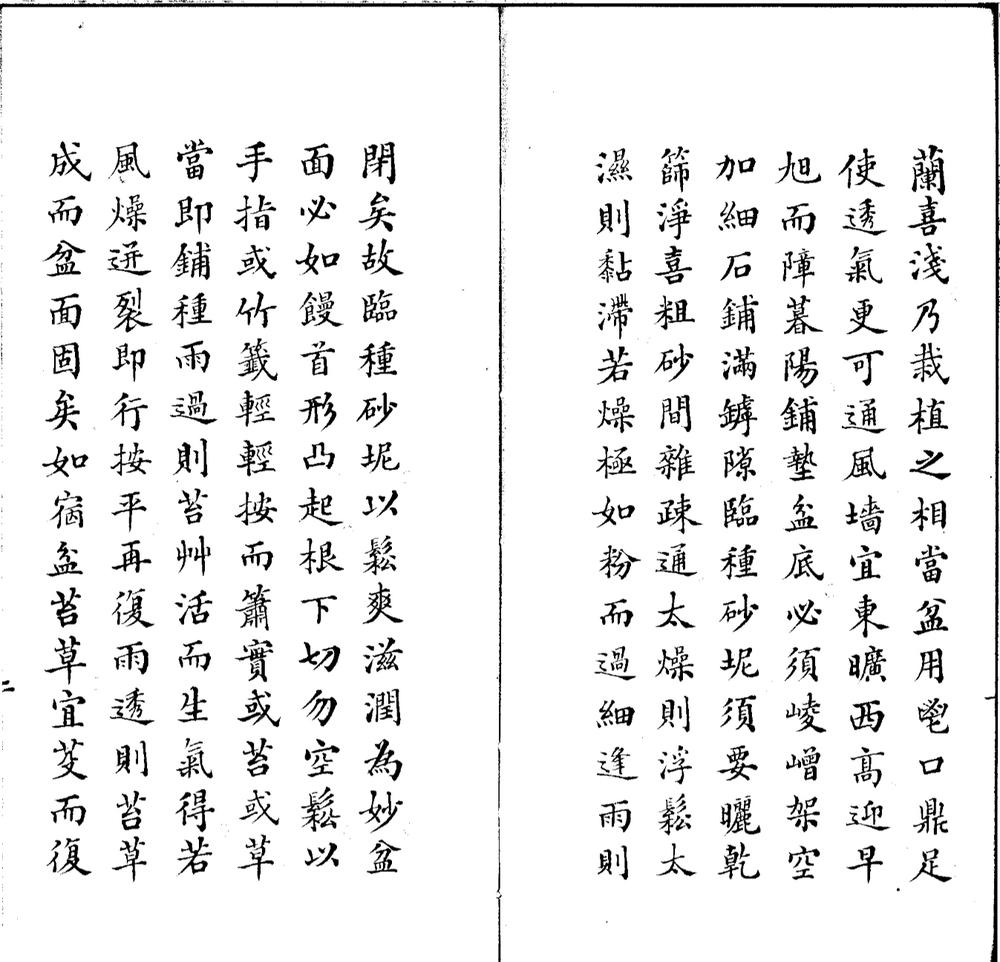 蘭喜淺乃栽植之相當盆用甏口鼎足
使透氣更可通風墻宜東曠西高迎早
旭而障暮陽鋪墊盆底必須崚嶒架空
加細石鋪滿罅隙臨種砂坭須要曬乾
篩淨喜粗砂間雜疎通太燥則浮鬆太
濕則黏滯若燥極如粉而過細逢雨則
閉矣故臨種砂坭以鬆爽滋潤為妙盆
面必如饅首形凸起根下切勿空鬆以
手指或竹籤輕輕按而簫實或苔或草
當即鋪種雨過則苔艸活而生氣得若
風燥迸裂即行按平再復雨透則苔草
成而盆面固矣如宿盆苔草宜芟而復